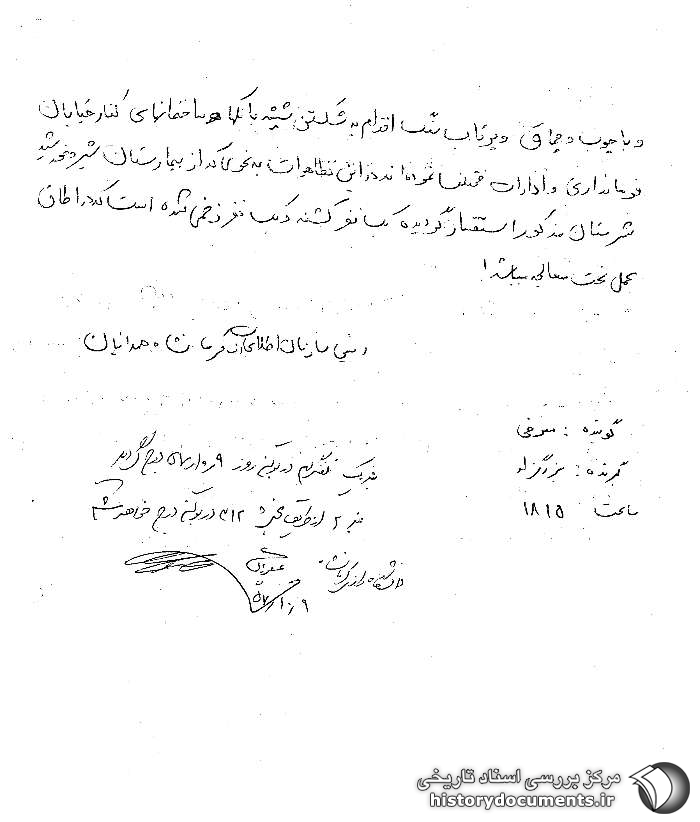 و با چوب و چماق و پرتاب سنگ اقدام به شکستن شیشه بانکها و ساختمانهای کنار خیابان
فرمانداری و ادارات مختلف نموده اند در این تظاهرات به نحوی که از بیمارستان شیر و خورشید
شهرستان مذکور استفسار گردیده یک نفر کشته و یک نفر زخمی شده است که در اطاق
عمل تحت معالجه میباشد!
رئیس سازمان اطلاعات کرمانشاه همدانیان
گوینده : معرفی
گیرنده : بزرگزاد
ساعت ۱۸۱۵
تلگرام در بولتن روز ۹ درج گردید
از طریق بخش ۳۱۲ در بولتن درج خواهد شد
مرکز بررسی اسناد تاریخی
historydocuments.ir